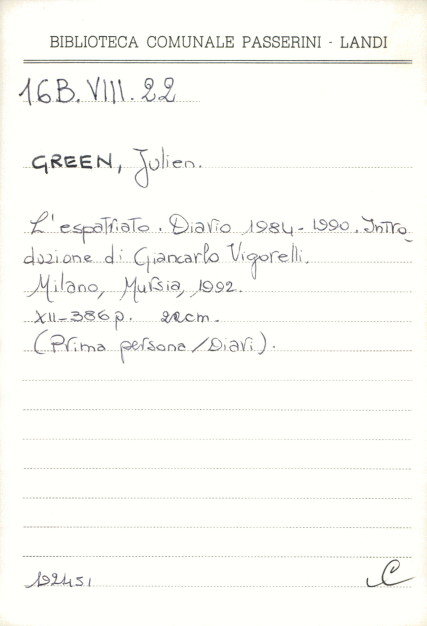 BIBLIOTECA COMUNALE PASSERINI - LANDI
16B. VIII. 22
GREEN, Julien.
L'espatriato. Diario 1984-1990. Intro-
duzione di Giancarlo Vigorelli.
Milano, Mursia, 1992.
XII-386 p. 22cm.
(Prima persona/Diari).
192451
C